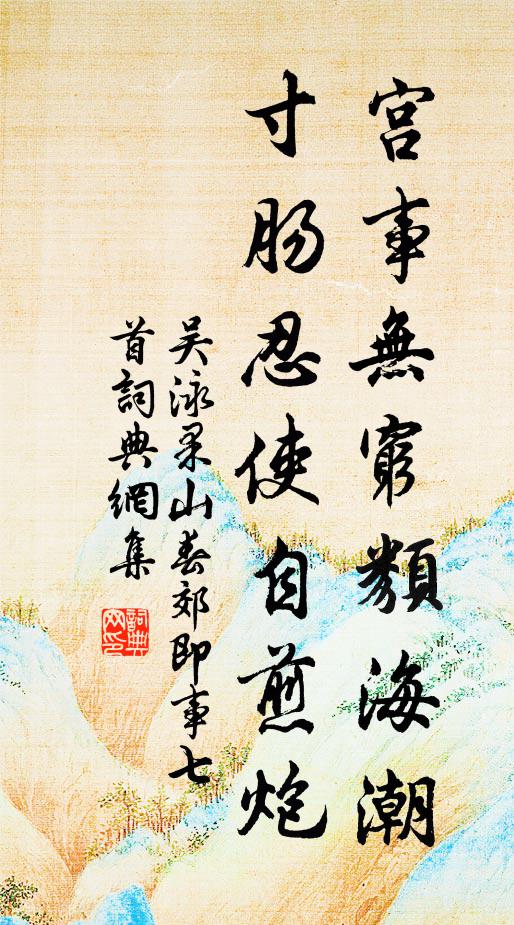 宫事無窮類海潮
寸腸忍使自煎炮
吴泳果山春郊即事七
首詞典網集
詞典
网印